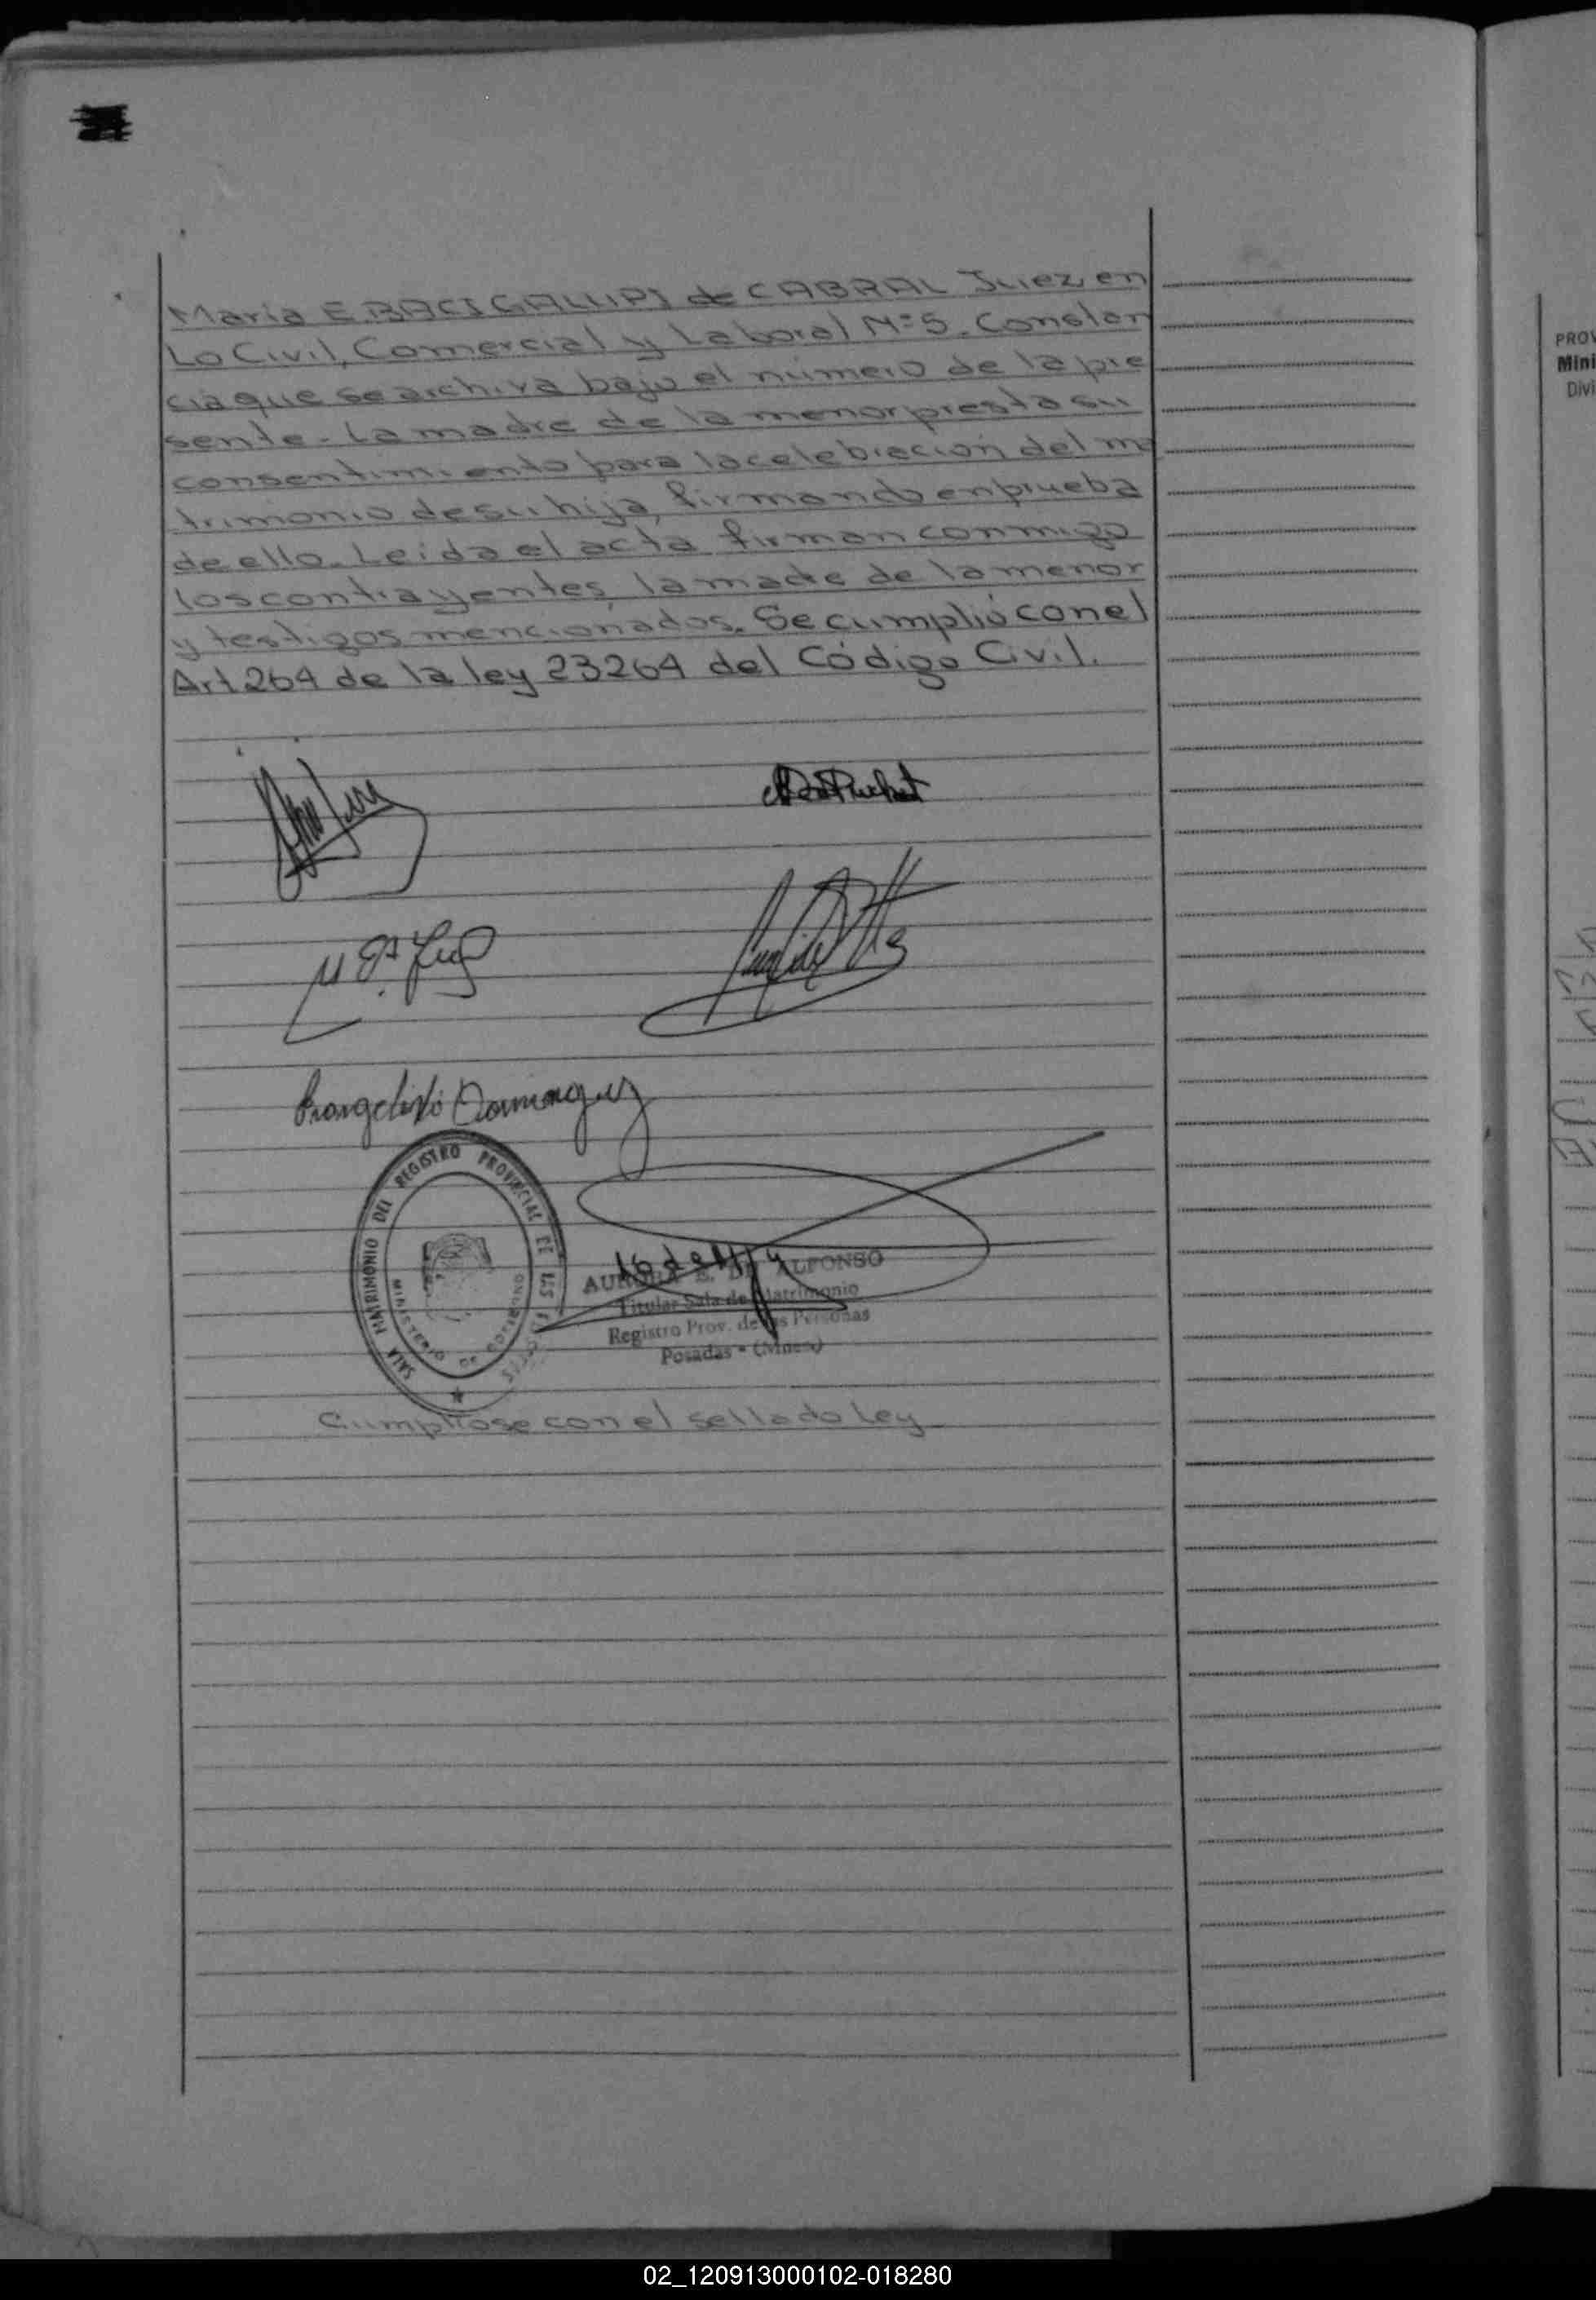 Maria E. BACIGALUPI de CABRAL Juez en
Lo Civil, Comercial y Laboral Nº 5. Constan
cia que se archiva bajo el número de la pre
sente. La madre de la menor presta su
consentimiento para la celebración del ma
trimonio de su hija, firmando en prueba
de ello. Leida el acta firman conmigo
los contrayentes, la madre de la menor
y testigos mencionados. Se cumplió con el
Art 264 de la ley 23264 del Código Civil.
Evangelisto Dominguez
SALA MATRIMONIO DEL REGISTRO PROVINCIAL DE LAS PERSONAS
MINISTERIO DE GOBIERNO
AURORA E. DE ALFONSO
Titular Sala de Matrimonio
Registro Prov. de las Personas
Posadas - (Mnes.)
Cumpliose con el sellado Ley
PROV
Mini
Divi
02_120913000102-018280